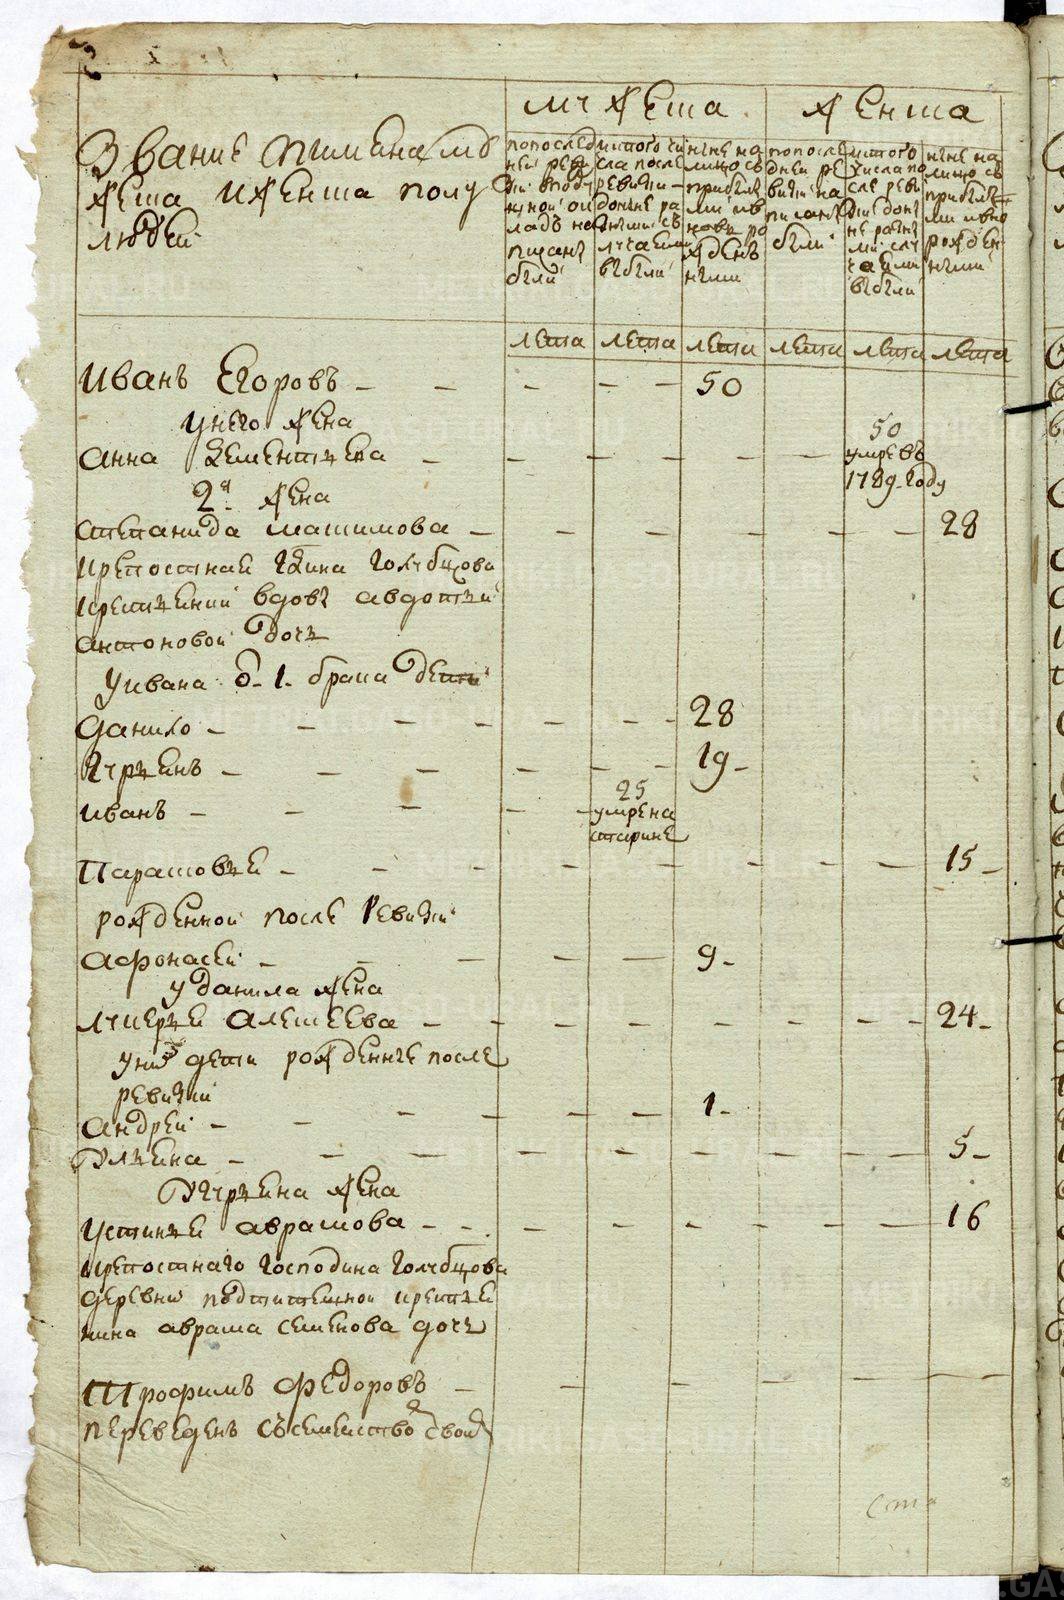 мужеска
женска
Звание и имена муже
жеска и женска полу
людей
по послед
ней реви
зии в подуш
ной ок
ладъ на
писаны
были
ис того чи
сла после
ревизии
до ныне ра
зными с
лучаями
выбыли
ныне на
лицо съ
прибыл
ми и в
новь ро
жденъ
ными
по после
дней ре
визии на
писаны
были
ис того
числа по
сле реви
зии до ны
не разны
ми слу
чаями
выбыли
ныне на
лицо съ
прибылы
ми и вно
рожден
ными
лета лета лета лета лета лета
Иванъ Егоровъ – 50
у него жена
Анна Клементьева – 50
умре въ
1789 году
2я жена
Степанида Максимова – 28
крепостная гдина Голубцова
крестьянки вдовы Авдотьи
Антоновой дочь
у Ивана о 1 брака дети
Данило – 28
Курьянъ – 19
Иванъ – 25
умре на
старине
Парасковья – 15
рожденной после ревизии
Афонасей – 9
у Данила жена
Лукерья Алексеева – 24
у них дети рожденные после
ревизии
Андрей – 1
Ульяна – 5
Курьяна жена
Устинья Аврамова – 16
крепостнаго господина Голубцова
деревни крестья
нина Аврама Семенова дочь
Трофимъ Федоровъ –
переведенъ съ семейство свои